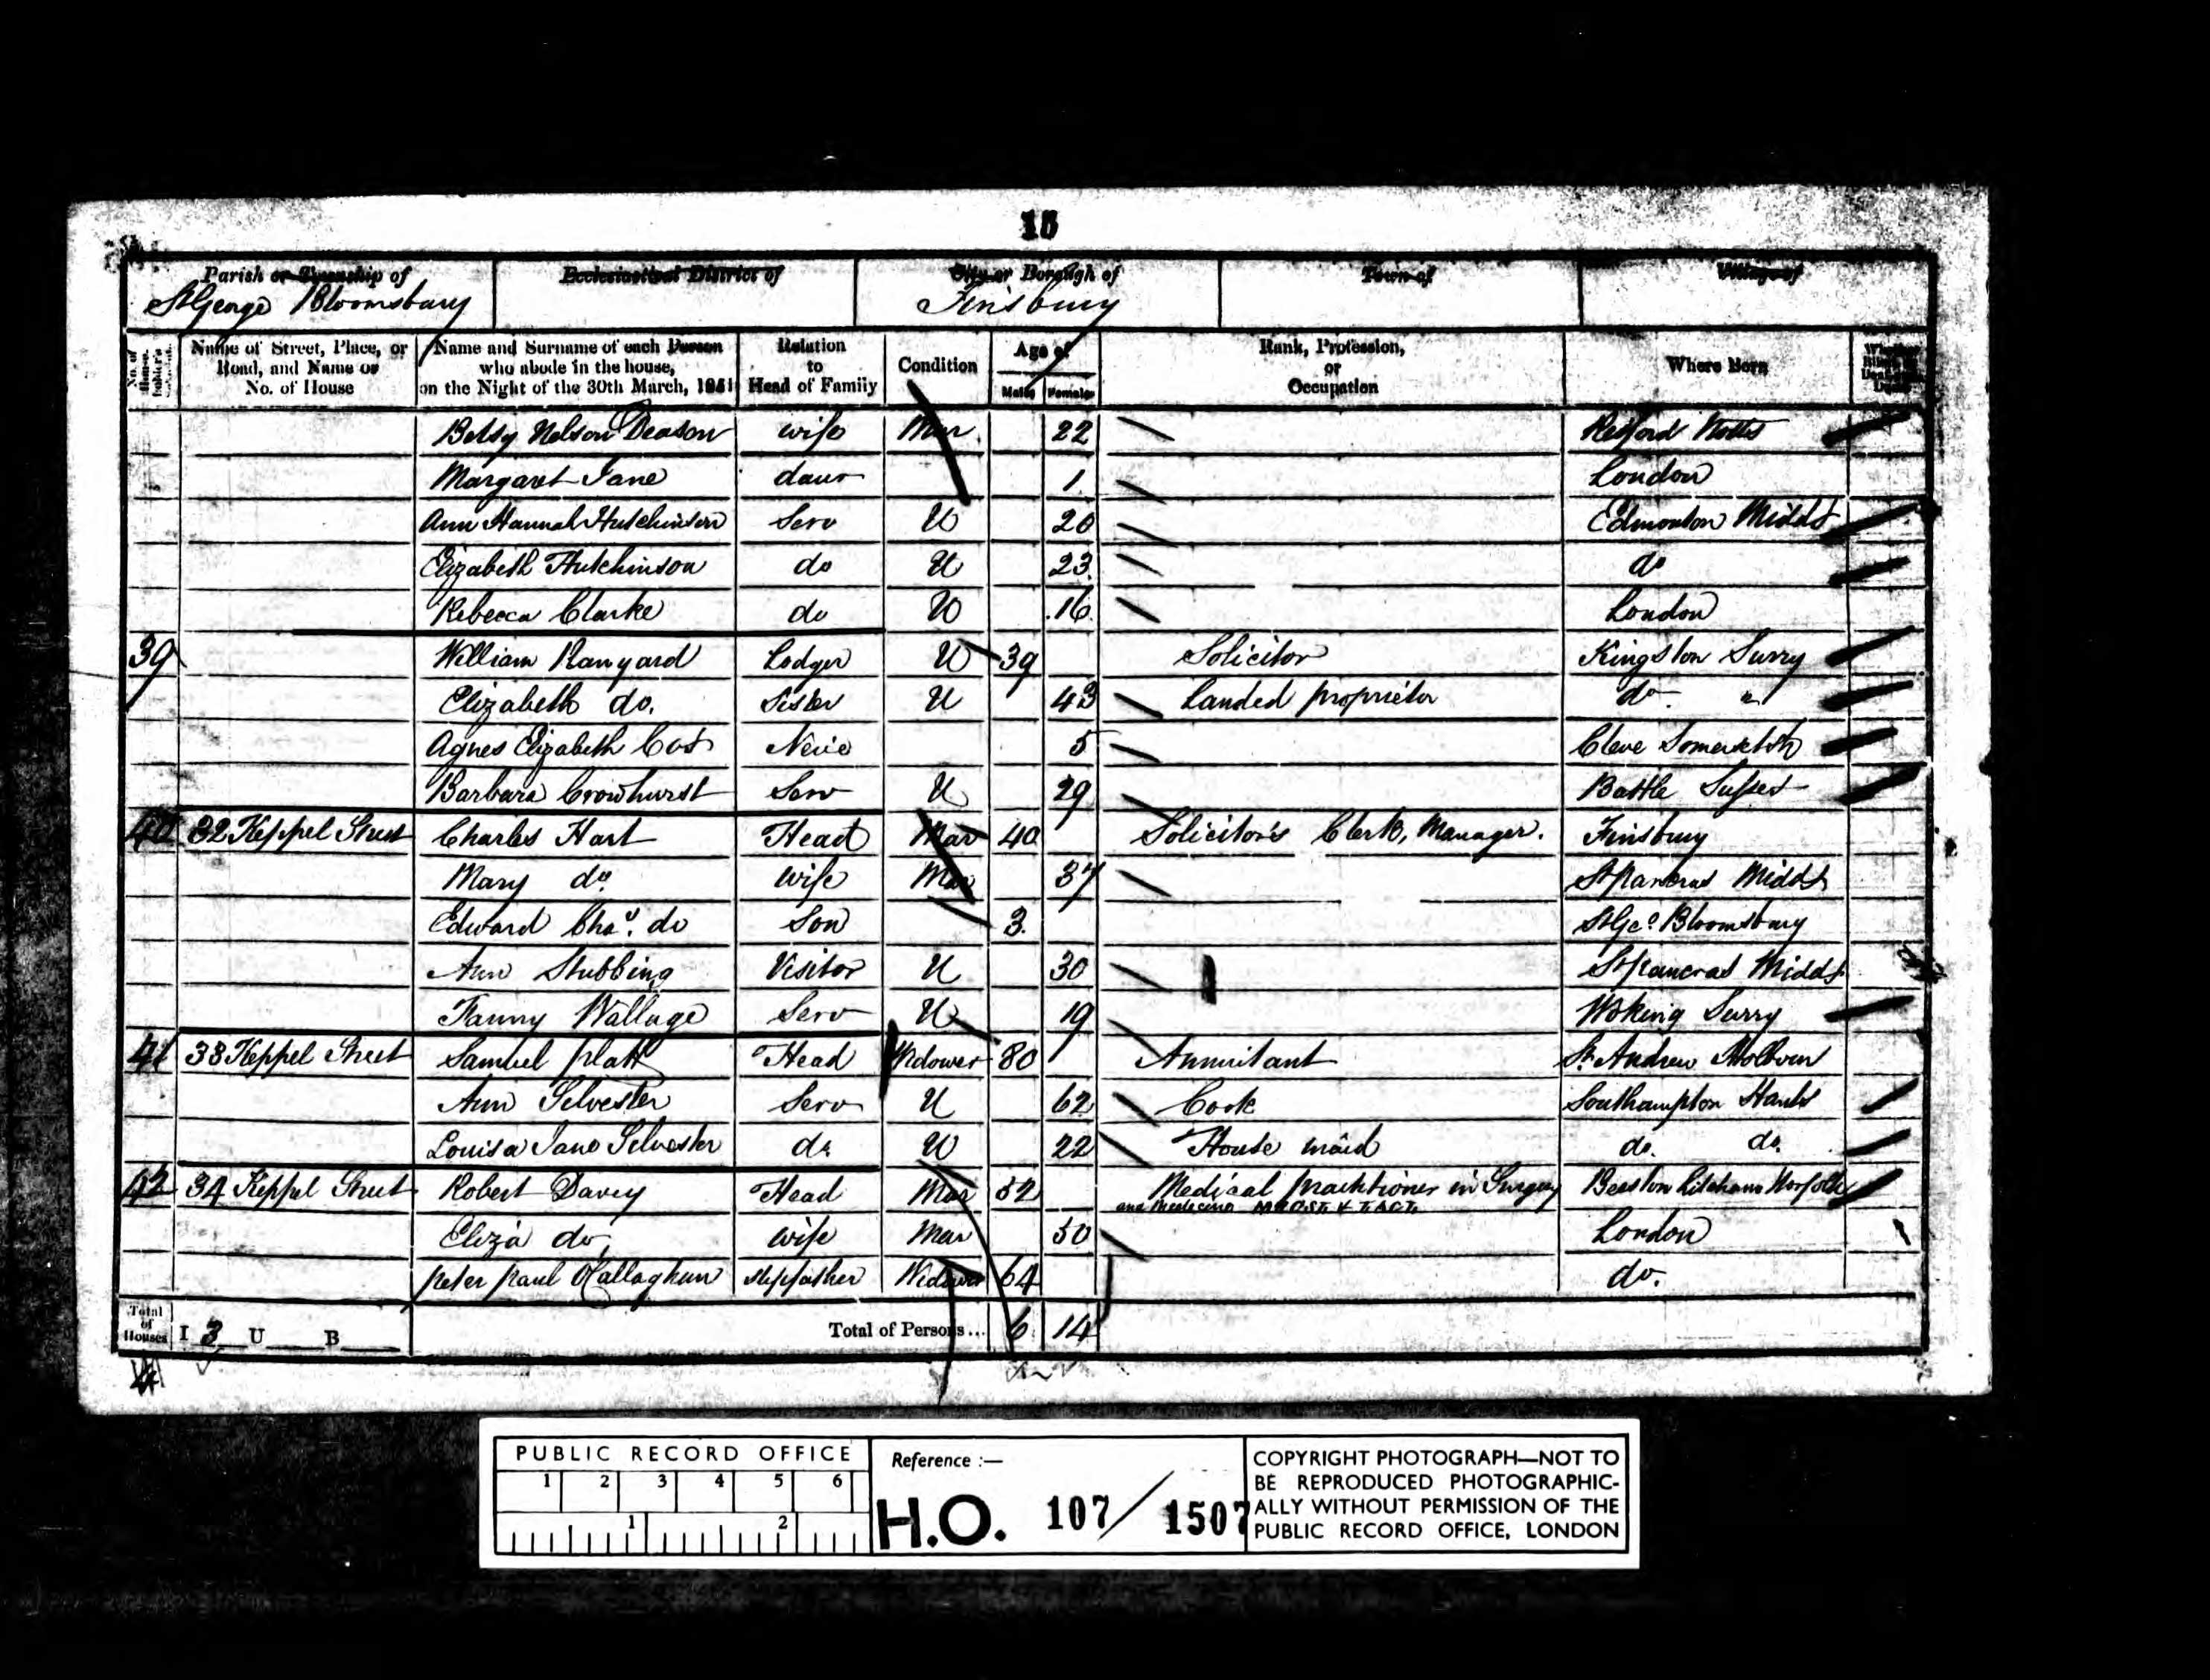 15
Parish or Township of
St George Bloomsbury
Ecclesiastical District of
City or Borough of
Finsbury
Town of
Village of
No. of House-
Name of Street, Place, or Road, and Name or No. of House
Name and Surname of each Person who abode in the house, on the Night of the 30th March, 1851
Relation to Head of Family
Condition
Age of
Males Females
Rank, Profession, or Occupation
Where Born
Betsy Nelson Deason wife Mar 22 Retford Notts
Margaret Jane daur 1 London
Ann Hannah Hutchinson Serv U 20 Edmonton Middx
Elizabeth Hutchinson do U 23 do
Rebecca Clarke do U 16 London
39 William Ranyard Lodger U 39 Solicitor Kingston Surry
Elizabeth do. Sister U 43 Landed proprietor do "
Agnes Elizabeth Neice 5 Cleve Somerset
Barbara Crowhurst Serv U 29 Battle Sussex
40 32 Keppel Street Charles Hart Head Mar 40 Solicitor's Clerk, Manager. Finsbury
Mary do. wife Mar 37 St Pancras Middx
Edward Chas. do Son 3 St Geo. Bloomsbury
Ann Stubbing Visitor U 30 St Pancras Middx
Fanny Wallage Serv U 19 Woking Surry
41 33 Keppel Street Samuel Platt Head Widower 80 Annuitant St Andrew Holborn
Ann Silvester Serv U 62 Cook Southampton Hants
Louisa Jane Silvester do U 22 House maid do. do.
42 34 Keppel Street Robert Davey Head Mar 52 Medical Practitioner in Surgery Beeston Litcham Norfolk
and Medicine
Eliza do. wife Mar 50 London
Peter Paul O'Callaghan Stepfather Widower 64 do.
Total of Houses I 3 U B Total of Persons... 6 14
PUBLIC RECORD OFFICE
1 2 3 4 5 6
1 2
Reference :—
H.O. 107/1507
COPYRIGHT PHOTOGRAPH—NOT TO
BE REPRODUCED PHOTOGRAPHIC-
ALLY WITHOUT PERMISSION OF THE
PUBLIC RECORD OFFICE, LONDON